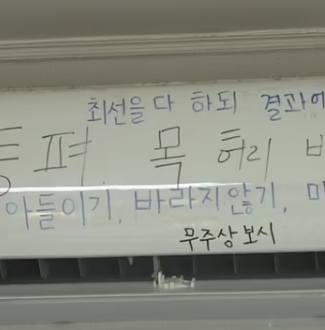 최선을 다 하되 결과에
펴. 목 허리
아들이기, 바라지않기,
무주상보시